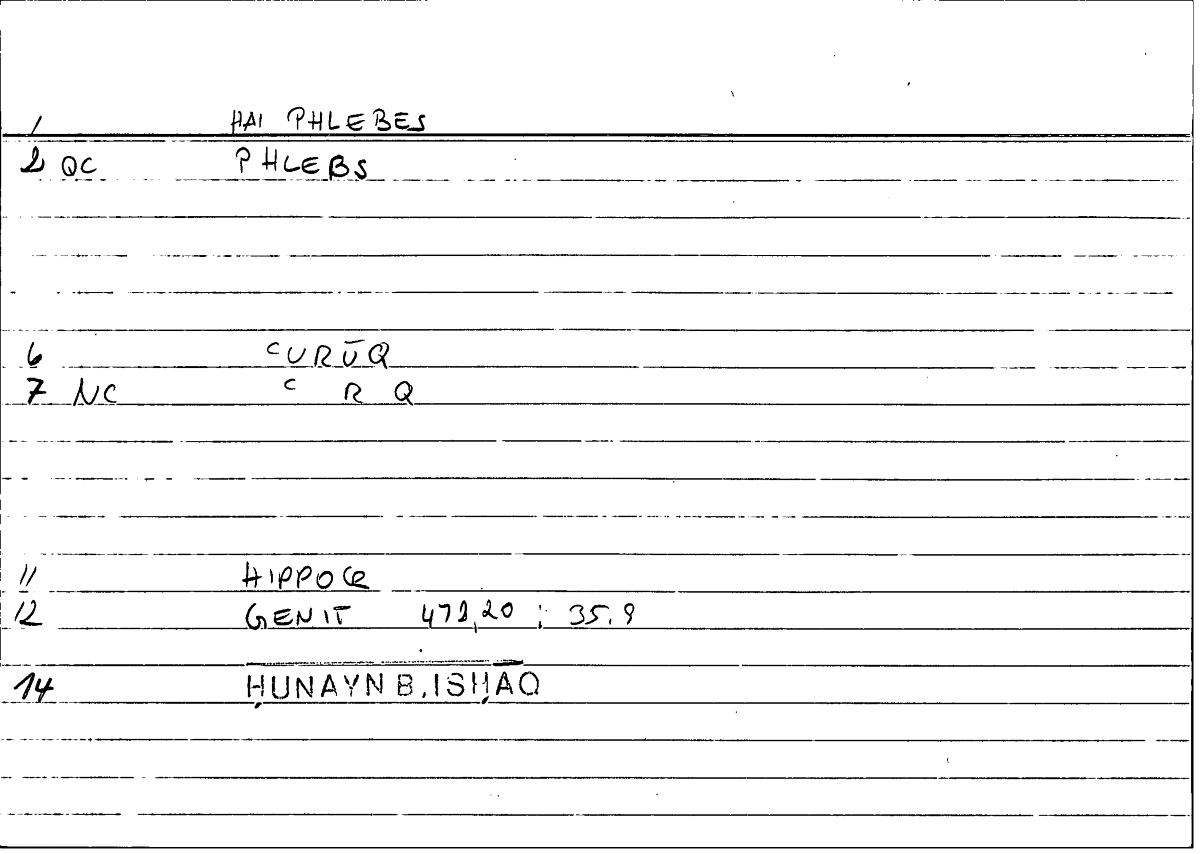 1 HAI PHLEBES
2 QC PHLEBS
6 ᶜURŪQ
7 NC ᶜ R Q
11 HIPPOCR
12 GENIT 472,20 ; 35.9
14 ḤUNAYN B. ISḤĀQ